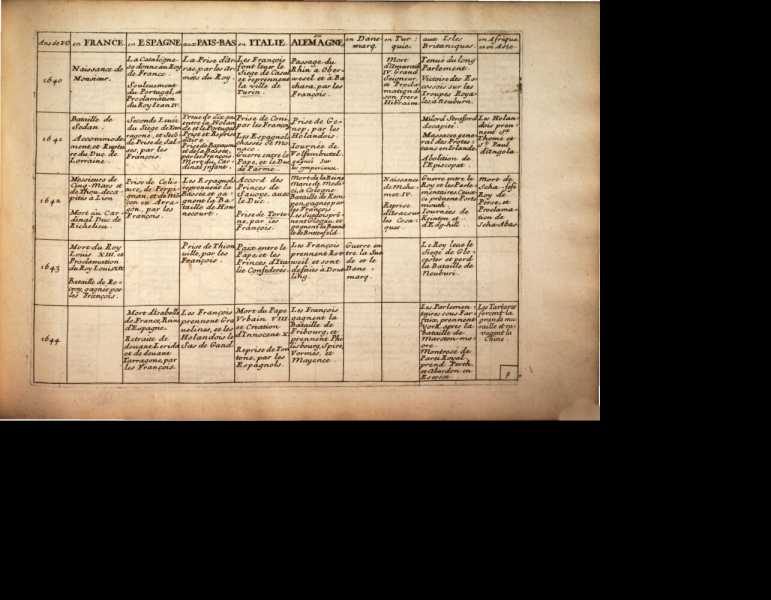 Ans de I.C.
en FRANCE
en ESPAGNE
aux PAIS-BAS
en ITALIE
en
ALEMAGNE
en Dane
marq.
en Tur:
quie.
aux Isles
Britaniques.
en Afrique
et en Asie
1640
Naissance de
Monsieur.
La Catalogne
se donne au Roy
de France
Soulevement
du Portugal, et
Proclamation
du Roy Jean IV.
La Prise d'Ar
ras, par les Ar
mées du Roy.
Les François
font lever le
Siege de Casal
et reprennent
la ville de
Turin.
Passage du
Rhin a Ober
wesel et à Ba
chara, par les
François.
Mort
d'Amurad
IV. Grand
Seigneur
et Procla
mation de
son frere
Hibraim
Tenue du long
Parlement.
Victoire des Es
cossois sur les
Troupes Roya
les, a Neuburn.
1641
Bataille de
Sedan.
Accommode
ment, et Ruptu
re du Duc de
Lorraine.
Prise de Coni
par les François
Les Espagnols
chassés de Mo
naco
Guerre entre le
Pape, et le Duc
de Parme
Prise de Ge
nep, par les
Holandois.
Journée de
Wolfembutel
Milord Straford
decapité.
Massacre gene
ral des Protes
tans en Irlande
Abolition de
l'Episcopat.
Les Holan
dois pren
nent St.
Thomé et
St. Paul
d'Angola
1642
Messieurs de
Cinq-Mars et
de Thou deca
pités a Lion
Mort du Car
dinal Duc de
Richelieu.
Prise de Colio
ure, de Perpi
gnan, et de Mo
çon en Arra
gon, par les
François.
Les Espagnols
reprennent la
Bassée et ga
gnent la Ba
taille de Hon
necourt.
Accord des
Princes de
Savoye, avec
le Duc.
Prise de Torto
ne, par les
François.
Mort de la Reine
Marie de Medi
cis, a Cologne
Bataille de Kem
pen, gagnée par
les François
Naissance
de Meho
met IV.
Reprise
d'Asac sur
les Cosa
ques.
Guerre entre le
Roy et les Parle
mentaires. Ceux
cy prenent Ports
mouth.
Journées de
Keinton et
d'Edg-hill.
Mort de
Scha-Sefi
Roy de
Perse, et
Proclama
tion de
Scha-Abas
1643
Mort du Roy
Louis XIII, et
Proclamation
du Roy Louis XIV
Bataille de Ro
croy, gagnée par
les François.
Prise de Thion
ville, par les
François.
Paix entre le
Pape, et les
Princes d'Ita
lie Confederés.
Les François
prennent Rot
weil et sont
defaits à Dout
ling.
Guerre en
tre la Sue
de et le
Dane
marq.
Le Roy leve le
Siege de Glo
cester et perd
la Bataille de
Neuburi.
1644
Mort d'Isabelle
de France, Reine
d'Espagne.
Retraite de
devant Lerida
et de devant
Tarragone, par
les François.
Les François
prennent Gra
velines, et les
Holandois le
Sas de Gand.
Mort du Pape
Urbain VIII.
et Creation
d'Innocent X.
Reprise de Tor
tone, par les
Espagnols.
Les François
gagnent la
Bataille de
Fribourg, et
prennent Phi
lisbourg, Spire,
Vormes, et
Mayence
Les Parlemen
taires sous Far
faix, prennent
York, apres la
Bataille de
Marston-mo
ore
Montrose de
Parti Royal
prend Perth
et Aberdon en
Escosse.
Les Tartares
forcent la
grande mu
raille et ra
vagent la
Chine